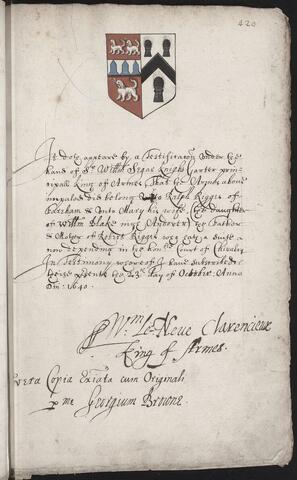 420
It doth appeare by a Testification under the
hand of Sr Willm Segar Knight Garter prin-
cipall King of Armes, That the Armes above
impaled did belong unto Ralph Rigges of
Fareham & unto Mary his wife the daughter
of Willm Blake of Andover the Father
& Mother of Rigges who hath a cause
now depending in the hon. Court of Chivalry
In Testimony whereof I have subscribed
these presents the 23th day of October Anno
Dni: 1640.
Wm Le Neve Clarencieux
King of Armes.
vera Copia Exiata cum Originali
p me Georgium Browne.